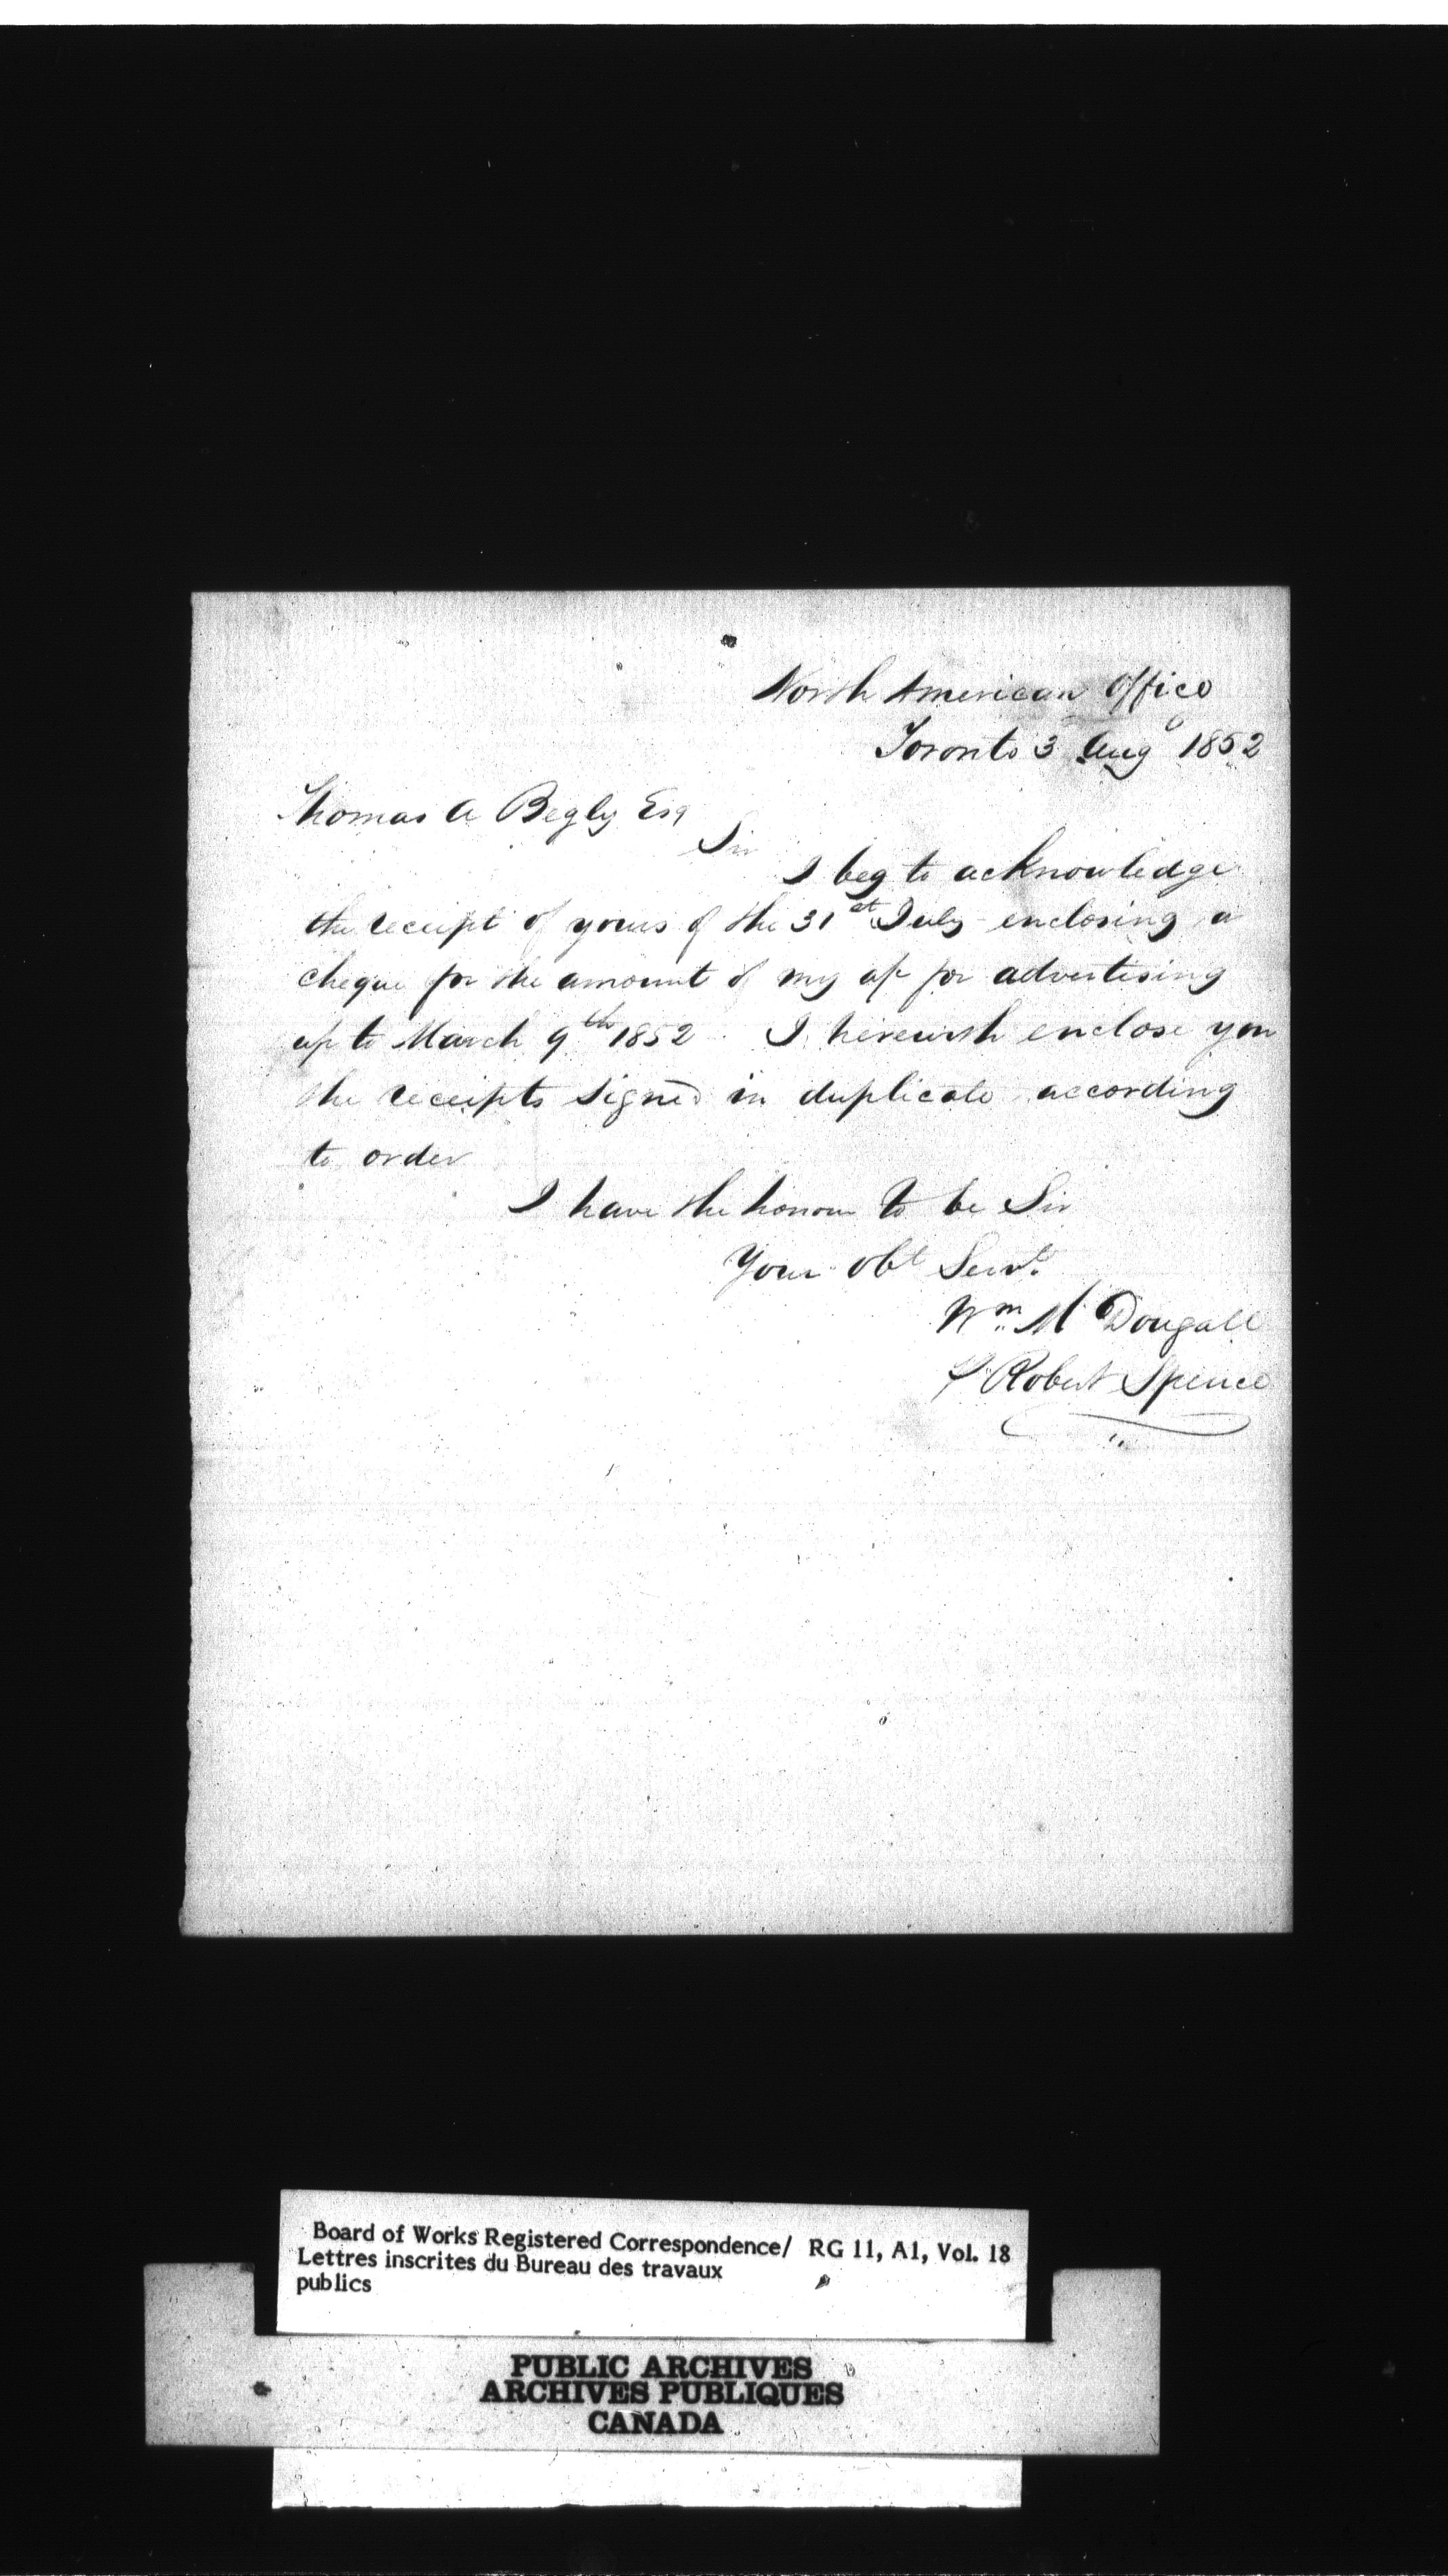 North American Office
Toronto 3 Aug 1852
Thomas A Begly Esq
Sir
I beg to acknowledge
the receipt of yours of the 31st July enclosing a
cheque for the amount of my a/c for advertising
up to March 9th 1852 I herewith enclose you
the receipts signed in duplicate according
to order
I have the honour to be Sir
Your obt Servt
Wm McDougall
Robert Spence
Board of Works Registered Correspondence/ RG 11, A1, Vol. 18
Lettres inscrites du Bureau des travaux
publics
PUBLIC ARCHIVES
ARCHIVES PUBLIQUES
CANADA